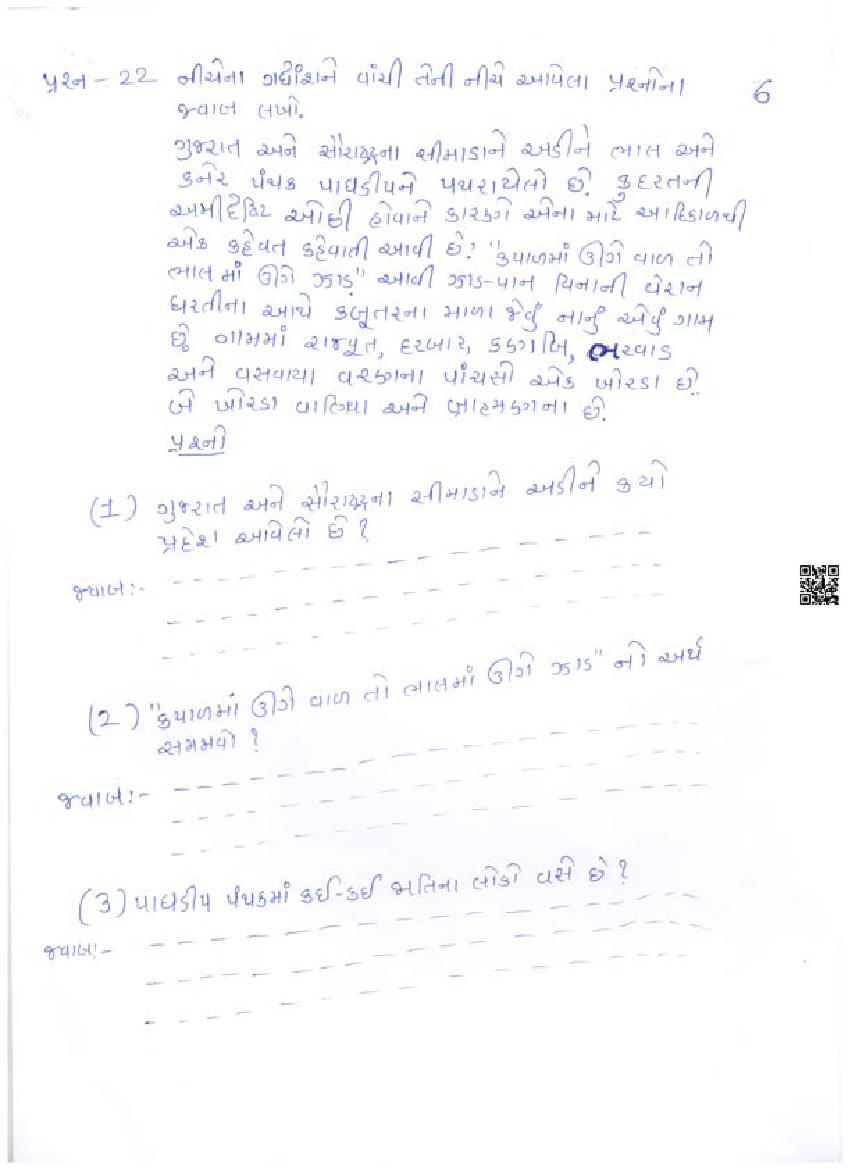 પ્રશ્ન - 22 નીચેના ગદ્યાંશને વાંચી તેની નીચે આવેલા પ્રશ્નોના 6
જવાબ લખો.
ગુજરાત અને સૌરાષ્ટ્રના સીમાડાને અડીને ભાલ અને
કનેર પંથક પાથડીપને પથરાયેલો છે. કુદરતની
અમીદૃષ્ટિ ઓછી હોવાને કારણે એના માટે આદિકાળથી
એક કહેવત કહેવાતી આવી છે: "કપાળમાં ઊગે વાળ તો
ભાલમાં ઊગે ઝાડ" આવી ઝાડ-પાન વિનાની વેરાન
ધરતીના આથે કબૂતરના માળા જેવું નાનું એવું ગામ
છે ગામમાં રાજપૂત, દરબાર, કણબિ, ભરવાડ
અને વસવાયા વરણના પાંચસો એક ખોરડા છે.
બે ખોરડા વાણિયા અને બ્રાહ્મણના છે.
પ્રશ્નો
(1) ગુજરાત અને સૌરાષ્ટ્રના સીમાડાને અડીને કયો
પ્રદેશ આવેલો છે ?
જવાબ:-
(2) "કપાળમાં ઊગે વાળ તો ભાલમાં ઊગે ઝાડ" નો અર્થ
સમજાવો ?
જવાબ:-
(3) પાથડીપ પંથકમાં કઈ-કઈ જાતિના લોકો વસે છે ?
જવાબ:-